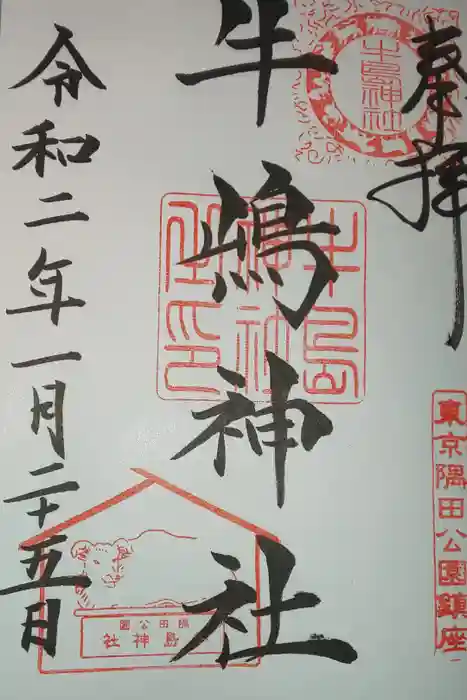 奉拝
東京隅田公園鎮座
牛島神社
牛嶋神社
隅田公園
牛島神社
令和二年一月二十五日